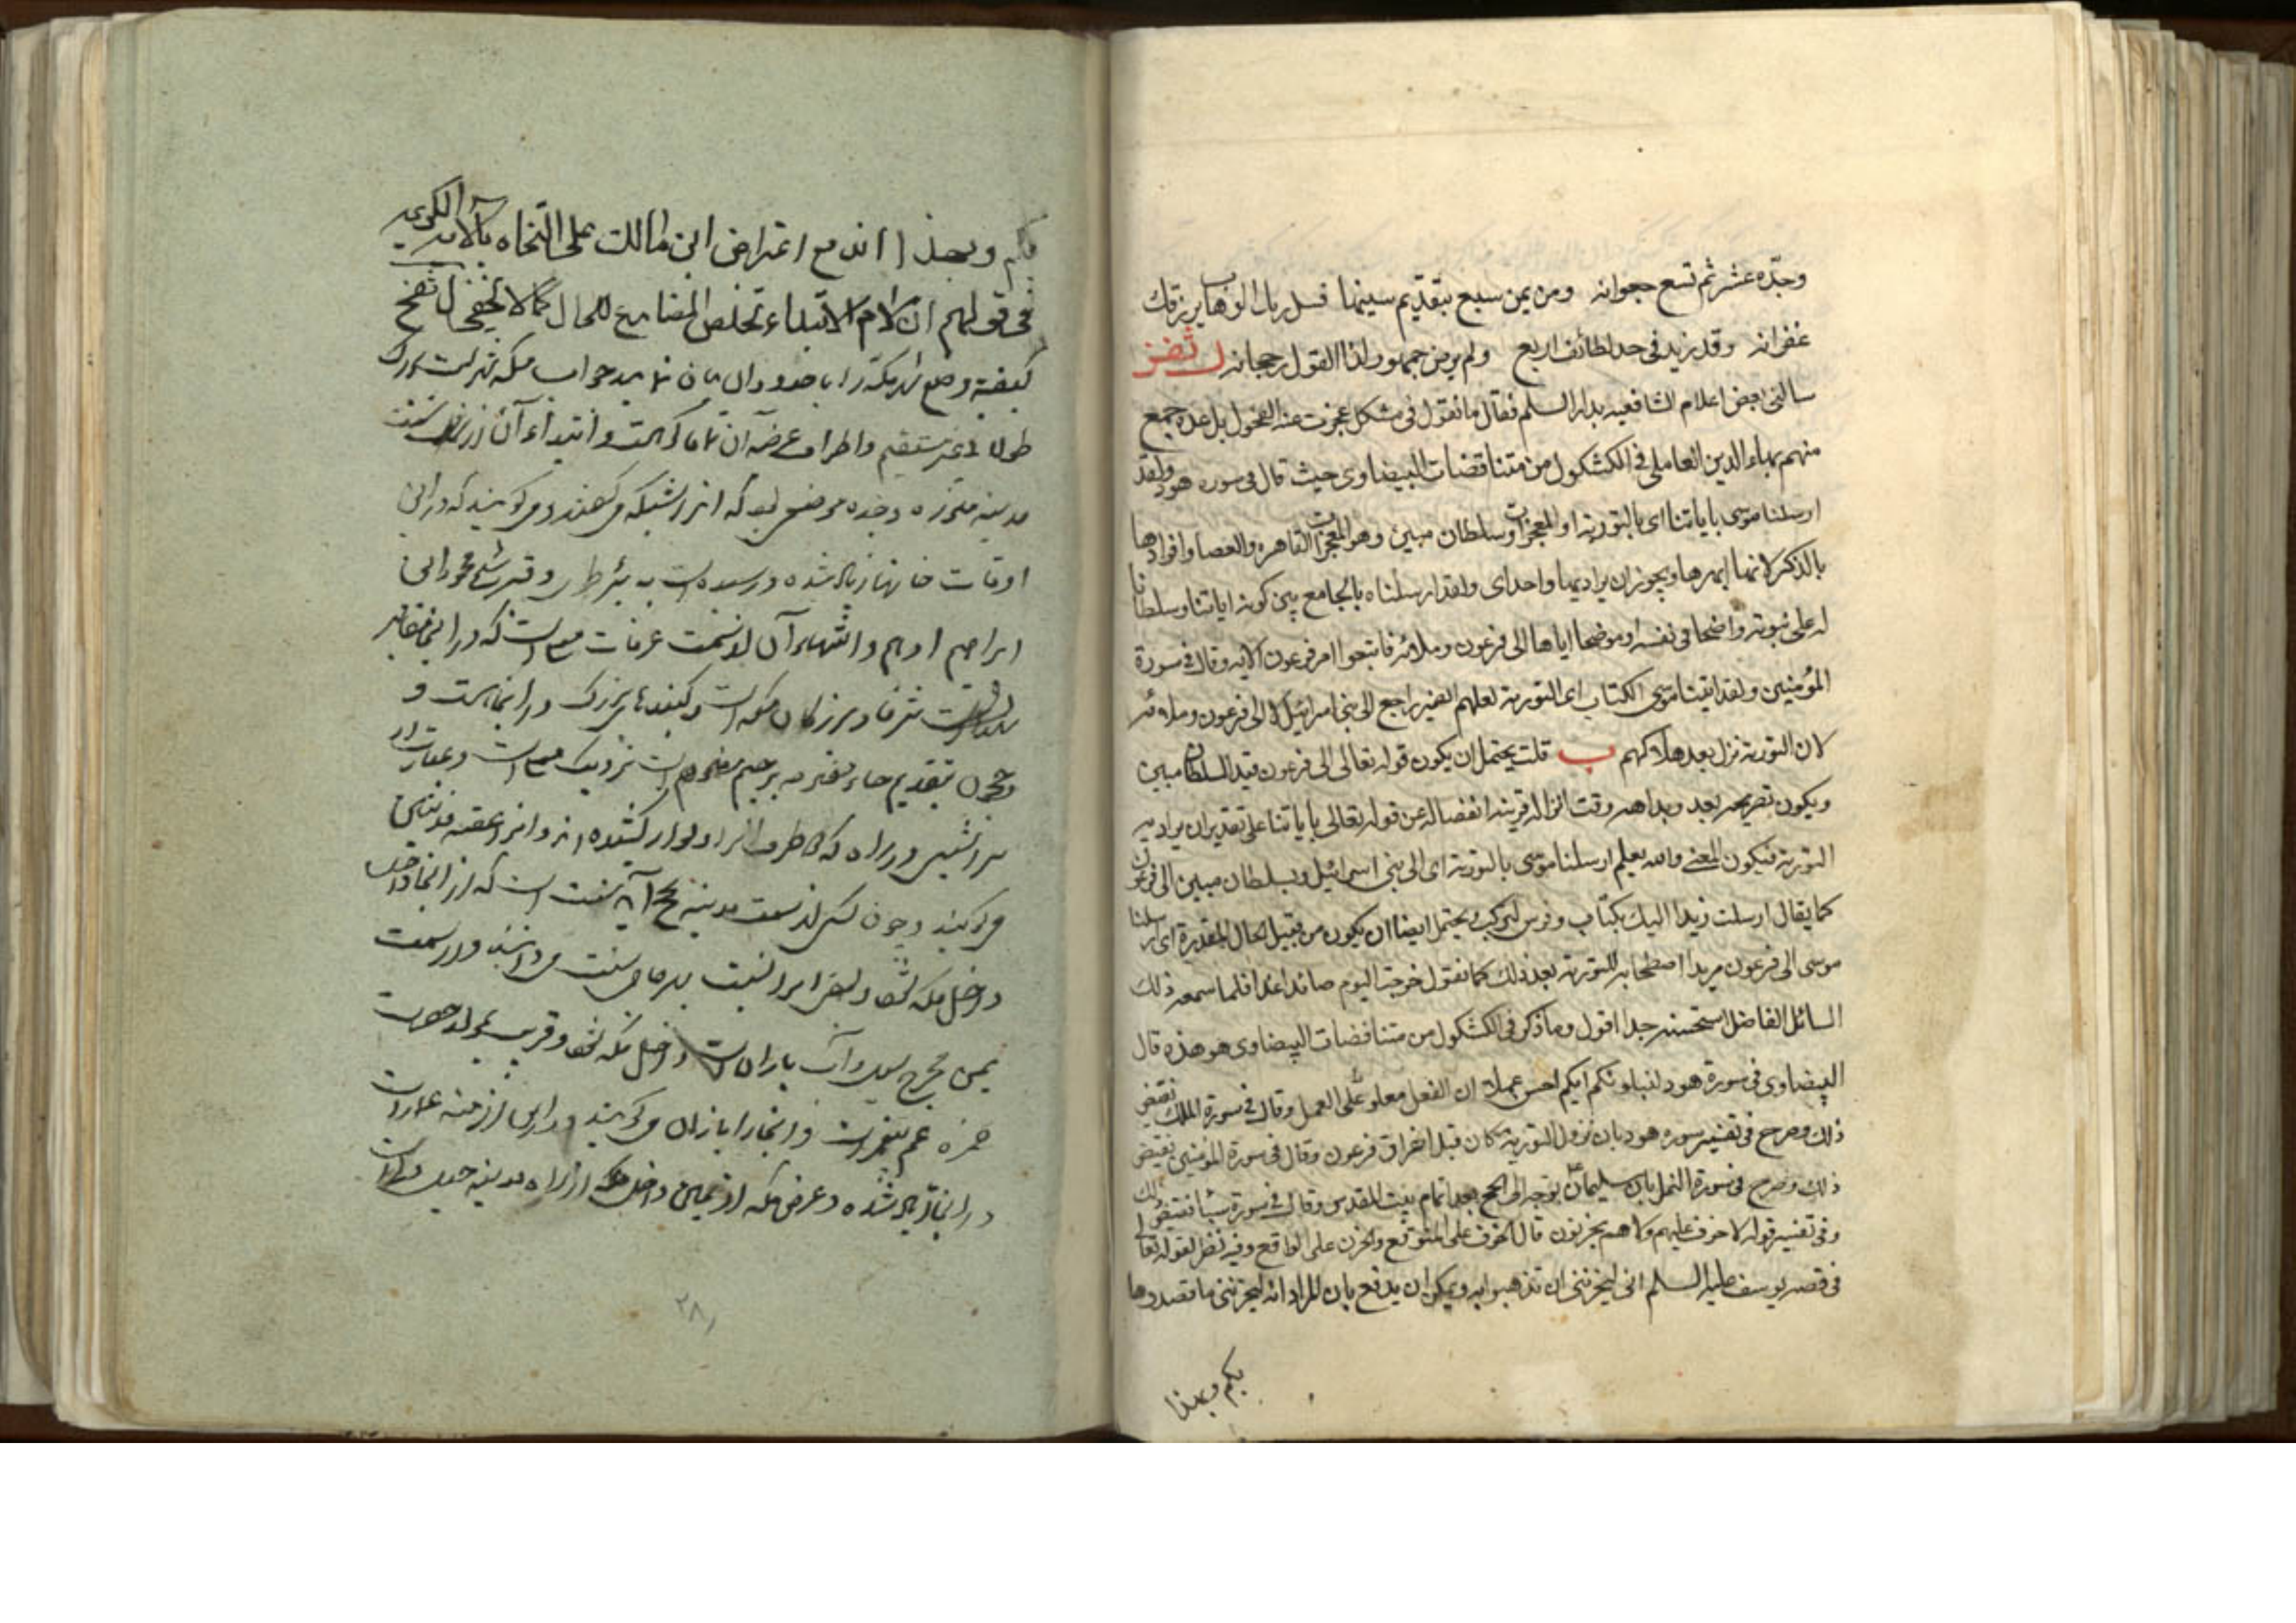 وجدّه عشر ثم تسع جعوانه ومن يمن سبع بتقديم سينها قسل ربك الوهاب يرزقك
غفرانه وقد زيد فى حد لطائف اربع ولم يرض جمهور لذا القول رجحانه ل ثفز
سالنى بعض اعلام الشافعيه بدار السلم فقال ما تقول فى مشكل عجزت عنه الفحول بل عده جمع
منهم بهاء الدين العاملى فى الكشكول من متناقضات البيضاوى حيث قال فى سوره هود ولقد
ارسلنا موسى باياتنا اى بالتورية او المعجزات وسلطان مبين وهو المعجزات القاهره والعصا وافرادها
بالذكر لانها ابهرها ويجوز ان يراد بهما واحد اى ولقد ارسلناه بالجامع بين كونه اياتنا وسلطانا
له على نبوته واضحا فى نفسه او موضحا اياها الى فرعون وملائه فاتبعوا امر فرعون الايه وقال فى سورة
المؤمنين ولقد اتينا موسى الكتاب اى التورية لعلهم الضمير راجع الى بنى اسرائيل لا الى فرعون وملائه
لان التورية نزل بعد هلاكهم ب قلت يحتمل ان يكون قوله تعالى الى فرعون قيد السلطان مبين
ويكون تصريحه بعد وبداهه وقت انزاله قرينه انفصاله عن قوله تعالى باياتنا على تقدير ان يراد به
التورية فيكون المعنى والله يعلم ارسلنا موسى بالتورية اى الى بنى اسرائيل وبسلطان مبين الى فرعون
كما يقال ارسلت زيدا اليك بكتاب وفرس لتركب ويحتمل ايضا ان يكون من قبيل الحال المقدرة اى ارسلنا
موسى الى فرعون مريدا اصطحابه للتورية بعد ذلك كما تقول خرجت اليوم صائدا غدا فلما سمعه ذلك
السائل الفاضل استحسنه جدا اقول وما ذكر فى الكشكول من متناقضات البيضاوى هو هذه قال
البيضاوى فى سورة هود لنبلونكم ايكم احسن عملا ان الفعل معلق على العمل وقال فى سورة الملك نقيض
ذلك وصرح فى تفسير سوره هود بان نزول التورية كان قبل اغراق فرعون وقال فى سورة المؤمنين نقيض
ذلك وصرح فى سورة النمل بان سليمان توجه الى الحج بعد اتمام بيت المقدس وقال فى سورة سبأ نقيض ذلك
وفى تفسير قوله لا خوف عليهم ولا هم يحزنون قال الخوف على المتوقع والحزن على الواقع وفيه نظر لقوله تعالى
فى قصه يوسف عليه السلم انى ليحزننى ان تذهبوا به ويمكن ان يدفع بان المراد انه ليحزننى ما قصد وها
بكم وبهذا
بكم وبهذا اندفع اعتراض ابن مالك على النحاه بالآية الكريمه
فى قولهم ان لام الابتداء تخلص المضارع للحال كما لا يخفى ل ثفح
كيفية وضع مكه را با حدود ان بيان نماييد جواب مكه شهريست بزرك
طولا غير مستقيم واطراف عرضه آن تماما كوهست وابتداء آن از سمت
مدينه منوره وجده موضعى بود كه انرا شبيكه ميكفتند وميكويند كه در اين
اوقات خانها زياد شده ورسيده است به بئر طوى وقبر شيخ محمود ابن
ابراهيم ادهم وانتهاء آن از سمت عرفات است كه در اين مقابر
است شرفا وبزركان مكه است وكنبدهاى بزرك در انجا هست و
حجون بتقديم حاء مفتوحه بر جيم مضموم است نزديك است وعبارت از
سراشيبى در راه كه طرف انرا ديوار كشيده اند وانرا عقبه مدنيين
ميكويند وچون كسى از سمت مدينه بحج آيد سنت است كه از انجا داخل
داخل مكه شود وبعضى انرا نسبت سنت ميدانند واز سمت
يمن مخرج سيل وآب باران است داخل مكه شود وقريب بمولد حضرت
حمزه عم پيغمبر است وانجا را بازان ميكويند ودر اين ازمنه عمارات
در انجا زياد شده وعرض مكه از يمين داخل مكه از راه مدينه جبل
٢٨١